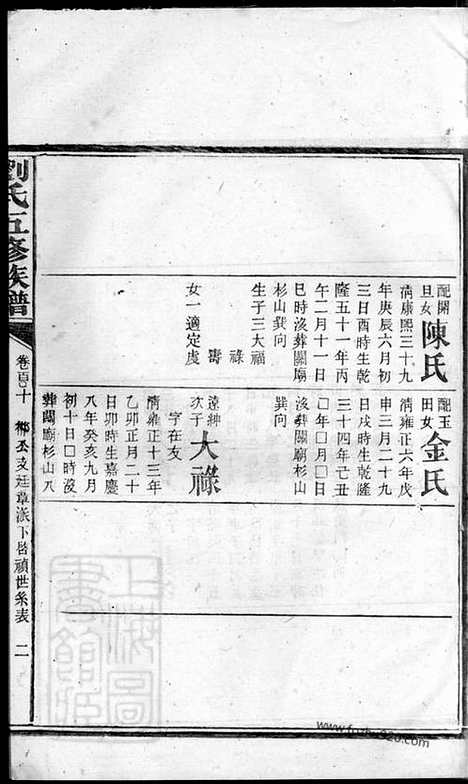 配開旦女陳氏
清康熙三十九
年庚辰六月初
三日酉時生乾
隆五十一年丙
午二月十一日
巳時沒葬關廟
杉山巽向
生子三大福
祿
壽
女一適定虞
配玉田女金氏
清雍正六年戊
申三月二十九
日戌時生乾隆
三十四年己丑
□年□月□日
沒葬關廟杉山
巽向
遠紳次子大祿
字在友
清雍正十三年
乙卯正月二十
日卯時生嘉慶
八年癸亥九月
初十日□時沒
葬關廟杉山人
劉氏五修族譜
卷百十
鄉公支廷章派下啓禎世系表
二
上海圖書館
www.fozhu920.com